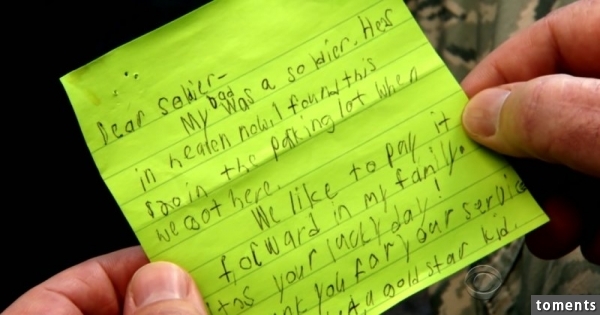 Dear Soldier-
My Dad was a soldier. Hes
in heaven now. I found this
$20 in the parking lot when
we got here.
We like to pay it
forward in my family.
Its your lucky day!
nk you for your service
a gold star kid.
toments